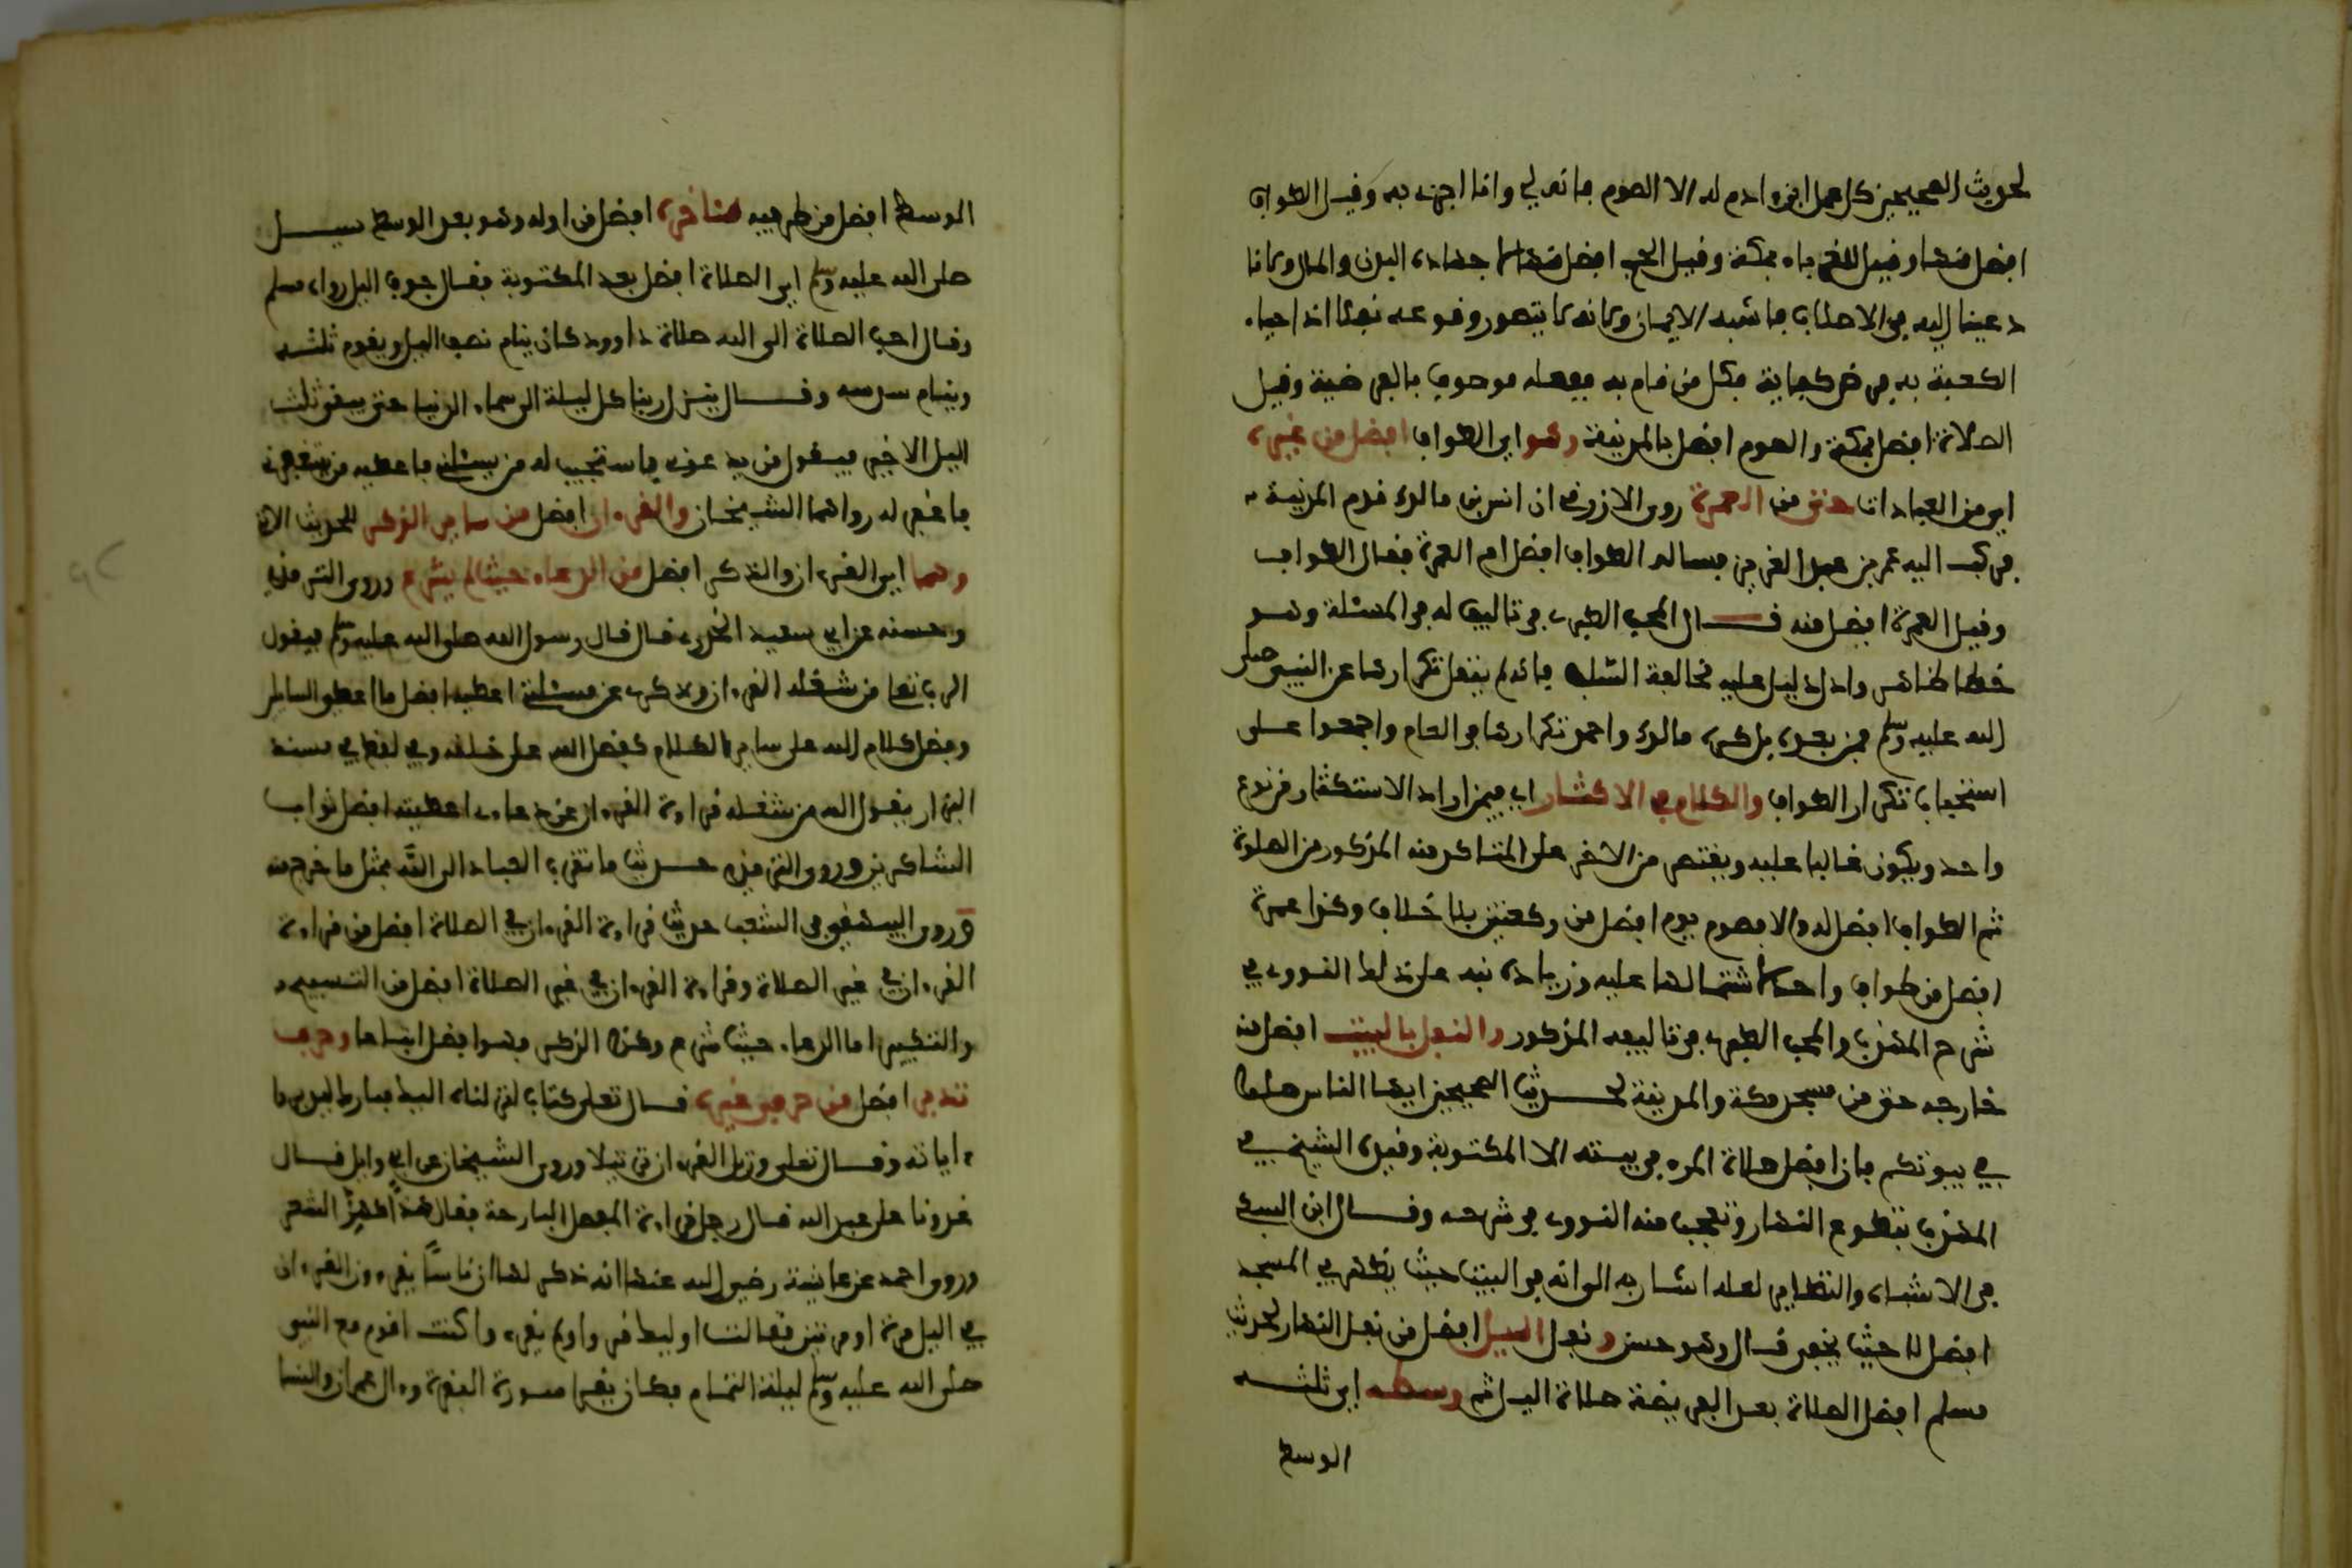 لحديث الصحيحين كل عمل ابن ءادم له الا الصوم فانه لي وانا اجزي به وقيل الطواف
افضل منها وقيل للغرباء بمكة وقيل الحج افضل منها لجهاده البدن والمال ولانا
دعينا اليه في الاصلاب فاشبه الايمان ولانه لا يتصور وقوعه نفلا اذ احياء
الكعبة به فرض كفاية فكل من قام به ففعله موصوف بالفرضية وقيل
الصلاة افضل بمكة والصوم افضل بالمدينة وهو اي الطواف افضل من غيره
اي من العبادات حتى من العمرة روى الازرقي ان انس بن مالك قدم المدينة
فركب اليه عمر بن عبد العزيز فساله الطواف افضل ام العمرة فقال الطواف
وقيل العمرة افضل منه قال المحب الطبري في تاليف له في المسئلة وهو
خطا ظاهر وادل دليل عليه مخالفة السلف فانه لم ينقل تكرارها عن النبي صلى
الله عليه وسلم فمن بعده بل كره مالك واحمد تكرارها في العام واجمعوا على
استحباب تكرار الطواف والكلام في الاكثار اي فيمن اراد الاستكثار من نوع
واحد ويكون غالبا عليه ويقتصر من الاخر على المتاكد منه المذكور من الصلوة
ثم الطواف افضل له والا فصوم يوم افضل من ركعتين بلا خلاف وكذا عمرة
افضل من طواف واحد لاشتمالها عليه وزيادة نبه على ذلك النووي في
شرح المهذب والمحب الطبري في تاليفه المذكور والنفل بالبيت افضل منه
خارجه حتى من مسجد مكة والمدينة لحديث الصحيحين ايها الناس صلوا
في بيوتكم فان افضل صلاة المرء في بيته الا المكتوبة وقيده الشيخ في
المهذب بتطوع النهار وتعجب منه النووي في شرحه وقال ابن السبكي
في الاشباه والنظاير لعله اشار به الى انه في البيت حيث يظهر في المسجد
افضل لا حيث يخفى قال وهو حسن ونفل الليل افضل من نفل النهار لحديث
مسلم افضل الصلاة بعد الفريضة صلاة الليل ثم وسطه اي ثلثه
الوسط
الوسط افضل من طرفيه فئاخره افضل من اوله وهو بعد الوسط سيل
صلى الله عليه وسلم اي الصلاة افضل بعد المكتوبة فقال جوف اليل رواه مسلم
وقال احب الصلاة الى الله صلاة داوود كان ينام نصف اليل ويقوم ثلثه
وينام سدسه وقال ينزل ربنا كل ليلة الى سماء الدنيا حتى يبقى ثلث
اليل الاخير فيقول من يدعوني فاستجيب له من يسئلني فاعطيه من يستغفرني
فاغفر له رواهما الشيخان والقرءان افضل من ساير الذكر للحديث الاتي
وهما اي القرءان والذكر افضل من الدعاء حيث لم يشرع وروى الترمذي
وحسنه عن ابي سعيد الخدري قال قال رسول الله صلى الله عليه وسلم فيقول
الرب تعلى من شغله القرءان وذكري عن مسئلتي اعطيه افضل ما اعطي السايلين
وفضل كلام الله على ساير الكلام كفضل الله على خلقه وفي لفظ في مسند
البزار يقول الله من شغله قراءة القرءان عن دعاءي اعطيته افضل ثواب
الشاكرين وروى الترمذي حديث ما تقرب العباد الى الله بمثل ما خرج منه
وروى البيهقي في الشعب حديث قراءة القرءان في الصلاة افضل من قراءة
القرءان في غير الصلاة وقراءة القرءان في غير الصلاة افضل من التسبيح
والتكبير اما الدعاء حيث شرع وكذا الذكر فهو افضل اتباعا وحرف
تدبر افضل من حرفي غيره قال تعلى كتاب انزلناه اليك مبارك ليدبروا
ءاياته وقال تعلى ورتل القرءان ترتيلا وروى الشيخان عن ابي وايل قال
غدونا على عبد الله فقال رجل قراءة المفصل البارحة فقال هذًّا كهذِّ الشعر
وروى احمد عن عايشة رضي الله عنها انه ذكر لها ان ناسًا يقرءون القرءان
في اليل مرة او مرتين فقالت اوليك قرءوا ولم يقرءوا كنت اقوم مع النبي
صلى الله عليه وسلم ليلة التمام فكان يقرا سورة البقرة وءال عمران والنسا